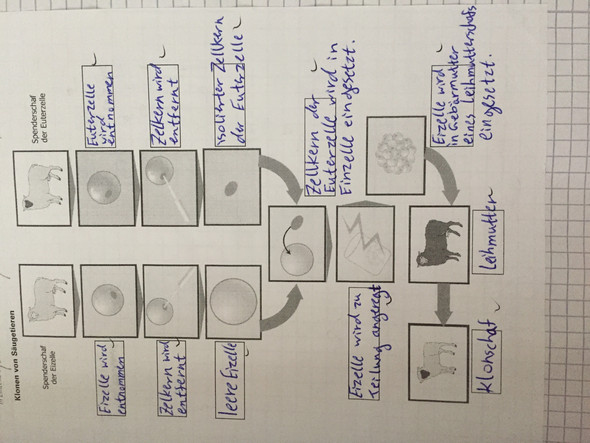 Klonen von Säugetieren
Spenderschaf
der Eizelle
Spenderschaf
der Euterzelle
Eizelle wird
entnommen
Euterzelle
wird
entnommen
Zelkern wird
entfernt
Zelkern wird
entfernt
leere Eizelle
isolierter Zellkern
der Euterzelle
Zellkern der
Euterzelle wird in
Einzelle eingesetzt.
Eizelle wird zu
Teilung angeregt
Eizelle wird
in Gebärmutter
eines Leihmutterschafs
eingesetzt.
Leihmutter
Klonschaf